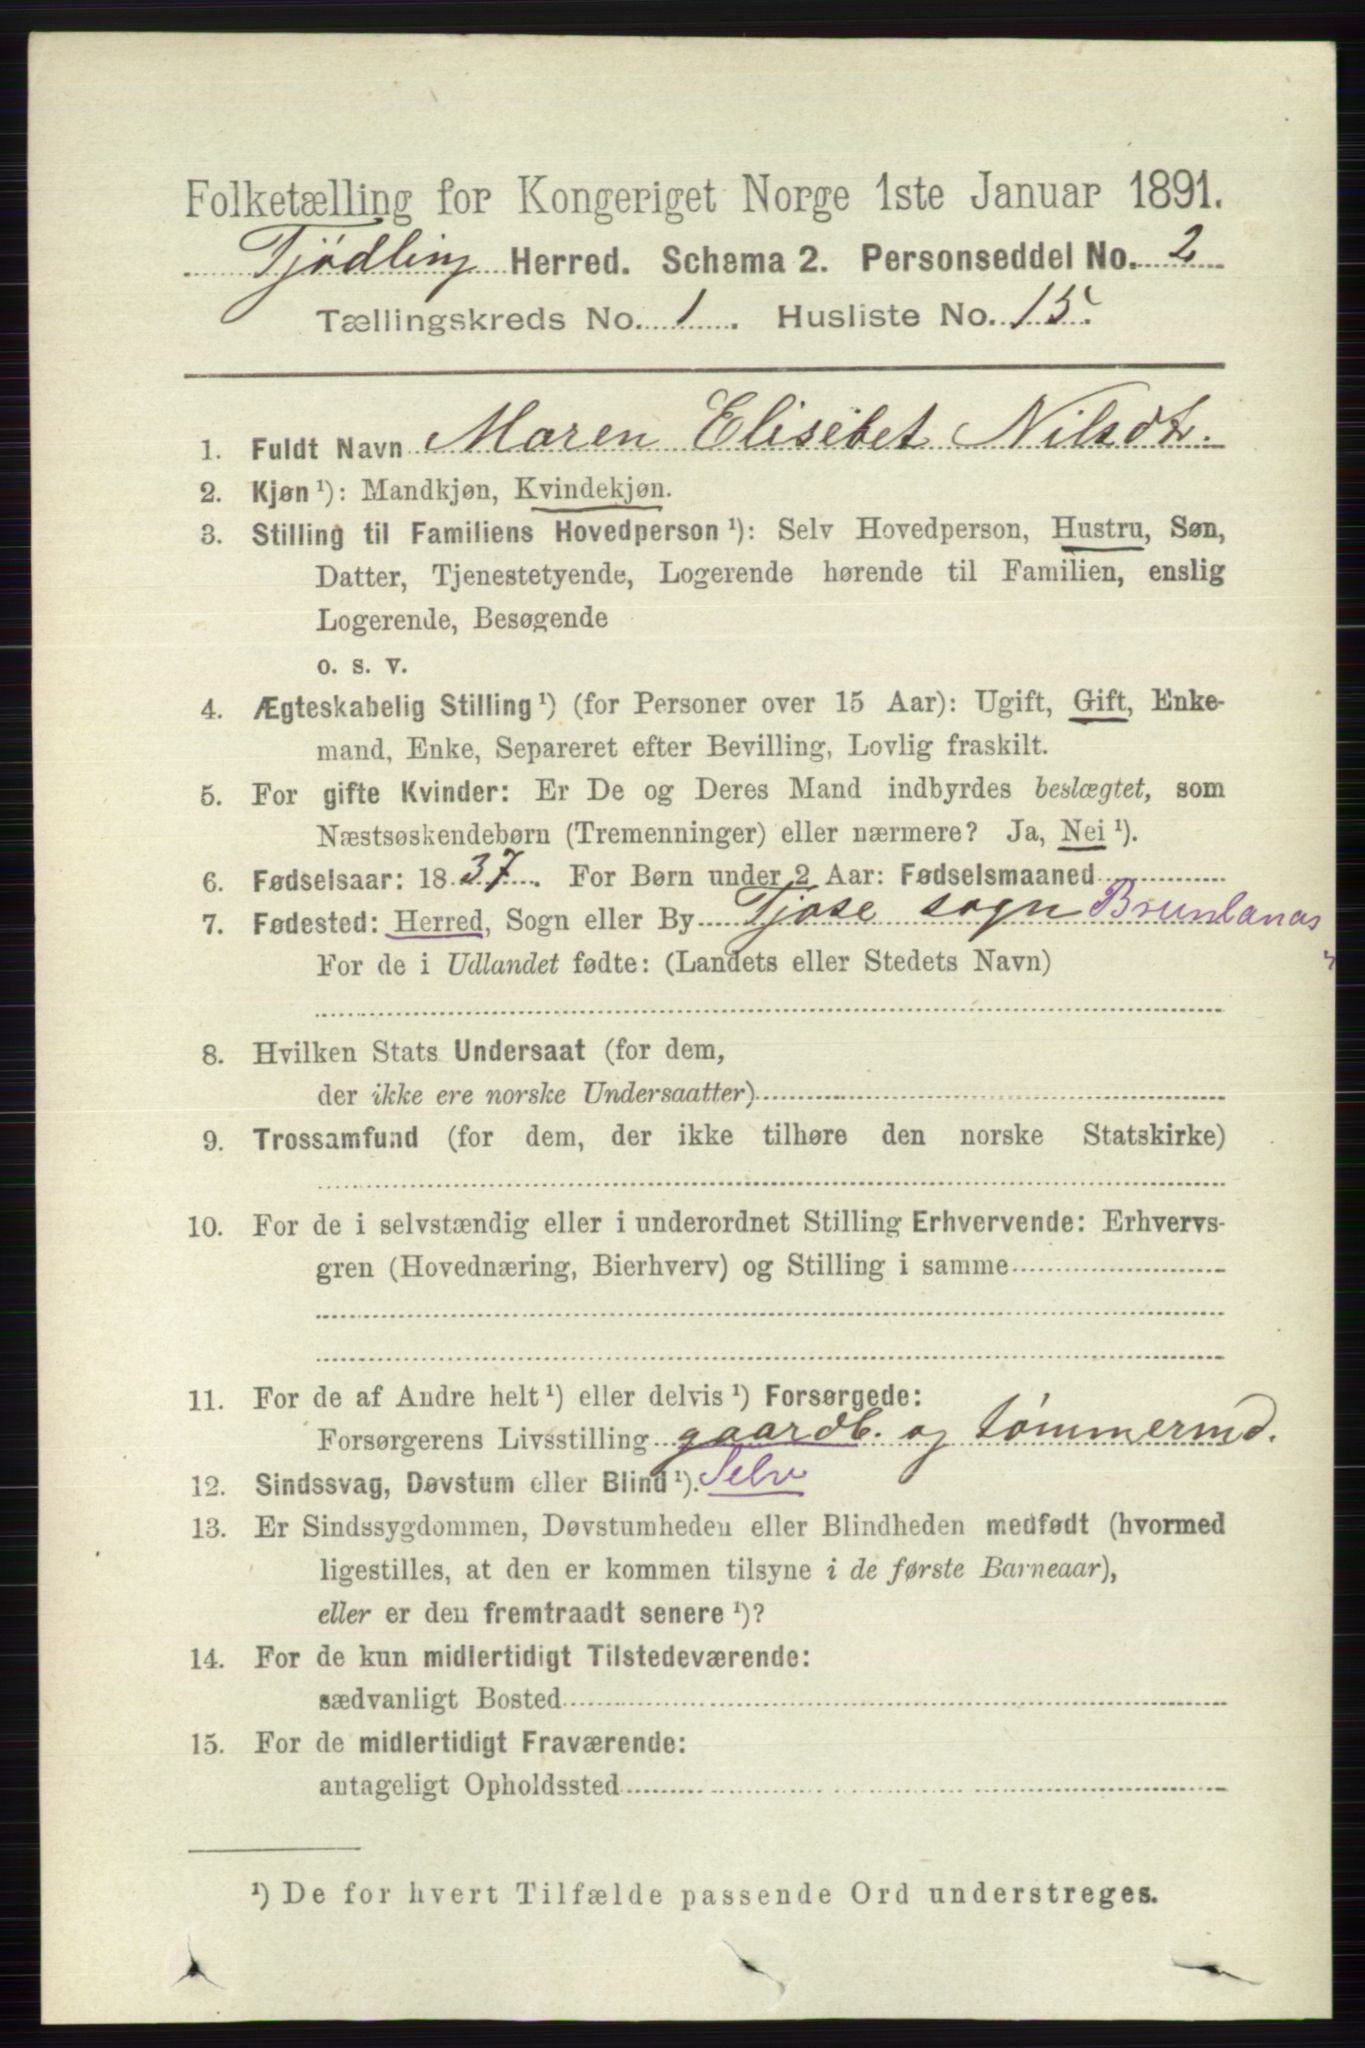 Folketælling for Kongeriget Norge 1ste Januar 1891.
Tjødling Herred. Schema 2. Personseddel No. 2
Tællingskreds No. 1. Husliste No. 15.
1. Fuldt Navn Maren Elisebet Nilsdt.
2. Kjøn ¹): Mandkjøn, Kvindekjøn.
3. Stilling til Familiens Hovedperson ¹): Selv Hovedperson, Hustru, Søn,
Datter, Tjenestetyende, Logerende hørende til Familien, enslig
Logerende, Besøgende
o. s. v.
4. Ægteskabelig Stilling ¹) (for Personer over 15 Aar): Ugift, Gift, Enke-
mand, Enke, Separeret efter Bevilling, Lovlig fraskilt.
5. For gifte Kvinder: Er De og Deres Mand indbyrdes beslægtet, som
Næstsøskendebørn (Tremenninger) eller nærmere? Ja, Nei ¹).
6. Fødselsaar: 1837. For Børn under 2 Aar: Fødselsmaaned
7. Fødested: Herred, Sogn eller By Tjøse sogn Brunlanas
For de i Udlandet fødte: (Landets eller Stedets Navn)
8. Hvilken Stats Undersaat (for dem,
der ikke ere norske Undersaatter)
9. Trossamfund (for dem, der ikke tilhøre den norske Statskirke)
10. For de i selvstændig eller i underordnet Stilling Erhvervende: Erhvervs-
gren (Hovednæring, Bierhverv) og Stilling i samme
11. For de af Andre helt ¹) eller delvis ¹) Forsørgede:
Forsørgerens Livsstilling gaardb. og tømmermd.
12. Sindssvag, Døvstum eller Blind ¹). Selv
13. Er Sindssygdommen, Døvstumheden eller Blindheden medfødt (hvormed
ligestilles, at den er kommen tilsyne i de første Barneaar),
eller er den fremtraadt senere ¹)?
14. For de kun midlertidigt Tilstedeværende:
sædvanligt Bosted
15. For de midlertidigt Fraværende:
antageligt Opholdssted
¹) De for hvert Tilfælde passende Ord understreges.